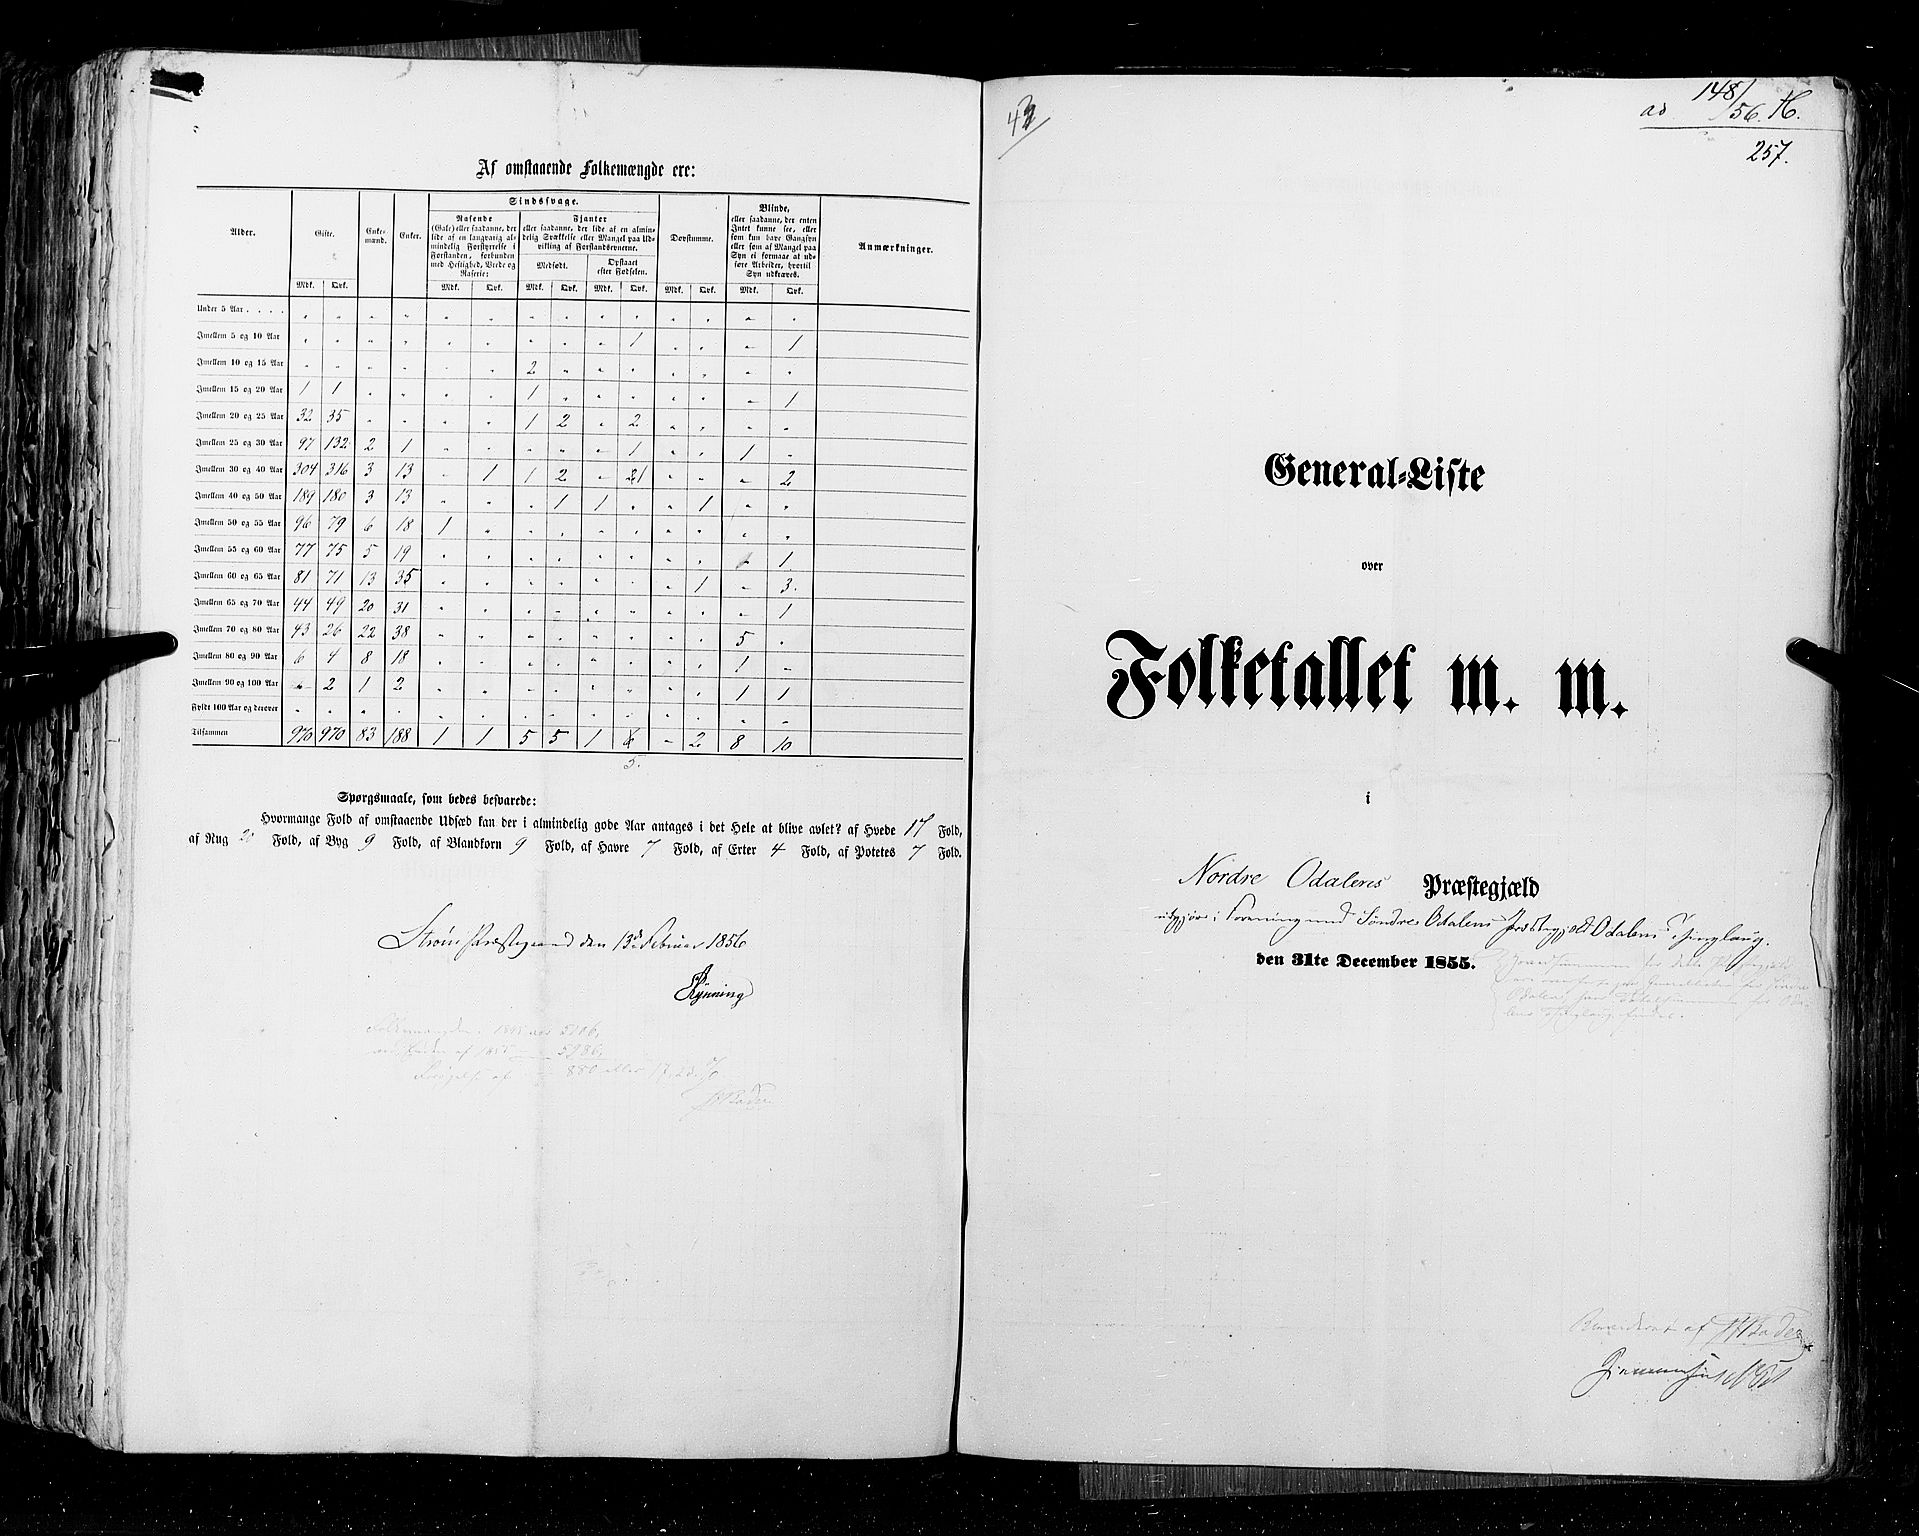 Af omstaaende Folkemængde ere:
Alder. Gifte. Enkemænd. Enker. Sindssvage. Døvstumme. Blinde, Anmærkninger.
Rasende (Gale) eller saadanne, der lide af en langvarig almindelig Forstyrrelse i Forstanden, forbunden med Heftighed, Vrede og Raserie:
Fjanter eller saadanne, der lide af en almindelig Svækkelse eller Mangel paa Udvikling af Forstandsevnerne.
Medfødt. Opstaaet efter Fødselen.
eller saadanne, der enten Intet kunne see, eller som kun have Gangsyn eller som af Mangel paa Syn ei formaae at udføre Arbeider, hvortil Syn udkræves.
Mdk. Qvk. Mdk. Qvk. Mdk. Qvk. Mdk. Qvk. Mdk. Qvk. Mdk. Qvk.
Under 5 Aar . . . . " " " " " " " " " " " " " "
Imellem 5 og 10 Aar " " " " " " " " " 1 " " " 1
Imellem 10 og 15 Aar " " " " " " 2 " " " " " " "
Imellem 15 og 20 Aar 1 1 " " " " 1 " " " " " " 1
Imellem 20 og 25 Aar 32 35 " " " " 1 2 " 2 " " " "
Imellem 25 og 30 Aar 97 132 2 1 " " " " " 1 " " 1 "
Imellem 30 og 40 Aar 304 316 3 13 " 1 1 2 " 1 " " " 2
Imellem 40 og 50 Aar 189 180 3 13 " " " 1 1 " " 1 " "
Imellem 50 og 55 Aar 96 79 6 18 1 " " " " " " " " "
Imellem 55 og 60 Aar 77 75 5 19 " " " " " " " " 1
Imellem 60 og 65 Aar 81 71 13 35 " " " " " " " 1 " 3.
Imellem 65 og 70 Aar 44 49 20 31 " " " " " " " " " 1
Imellem 70 og 80 Aar 43 26 22 38 " " " " " " " " 5 "
Imellem 80 og 90 Aar 6 4 8 18 " " " " " " " " 1 "
Imellem 90 og 100 Aar " 2 1 2 " " " " " " " " 1 1
Fyldt 100 Aar og derover " " " " " " " " " " " " " "
Tilsammen 970 970 83 188 1 1 5 5 1 " 2 8 10
5.
Spørgsmaale, som bedes besvarede:
Hvormange Fold af omstaaende Udsæd kan der i almindelig gode Aar antages i det Hele at blive avlet? af Hvede 17 Fold,
af Rug 20 Fold, af Byg 9 Fold, af Blandkorn 9 Fold, af Havre 7 Fold, af Erter 4 Fold, af Potetes 7 Fold.
Strøm Præstegaard den 13de Februar 1856
Rynning
Folkemængden i 1845 var 5106,
ved Enden af 1855 5986,
Forøgelse af 880 eller 17,23 %
Bader
148/
ad 56. H.
257.
General-Liste
over
Folketallet m. m.
i
Nordre Odalens Præstegjæld
udgjør i Forening med Søndre Odalens Præstegjeld Odalens Thinglaug.
den 31te December 1855.
for dette Præstegjæld
Generallisten for Søndre
Odalen, hvor Totalsummen for Oda-
lens Thinglaug findes.
af Bader